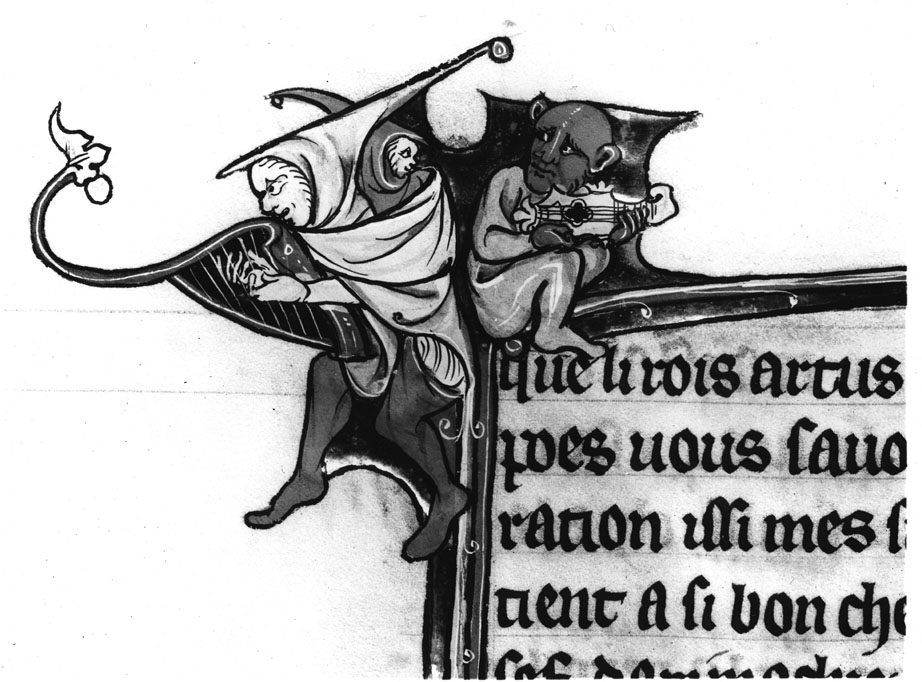 que li rois artus
poes uous sauo
ration issi mes s
tient a si bon che